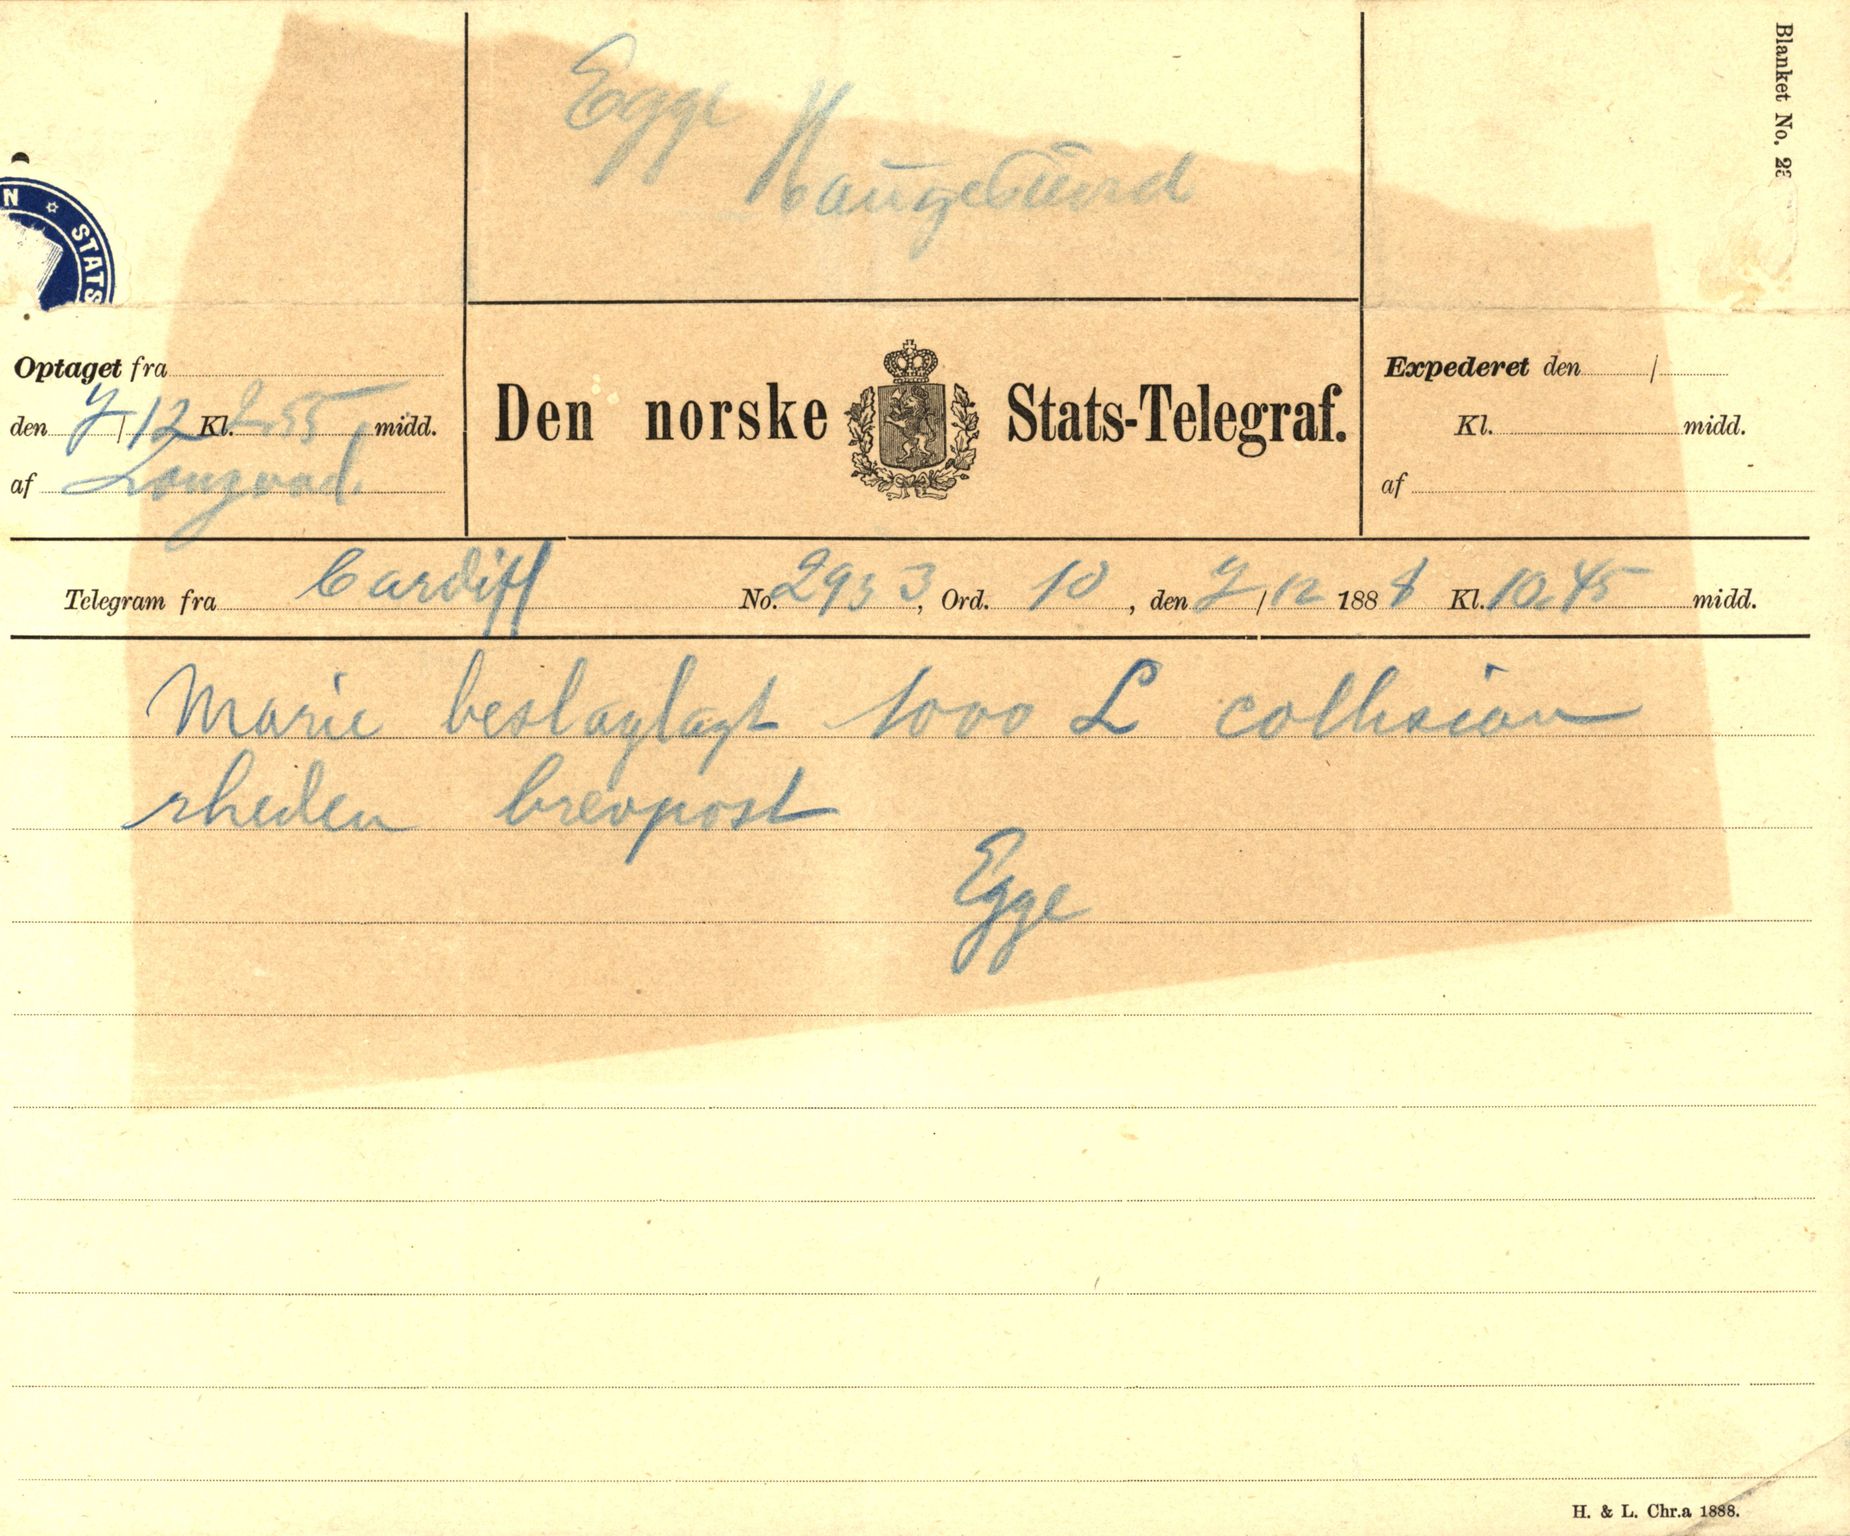 Egge
Haugesund
Blanket No. 23
N ✡ STATS
Optaget fra
den 7/12 Kl. 2.55 midd.
af
Den norske Stats-Telegraf.
Expederet den /
Kl. midd.
af
Telegram fra Cardiff No. 2933, Ord. 10, den 7/12 1888 Kl. 10.45 midd.
Marie beslaglagt 1000 £ collision
rheden brevpost
Egge
H. & L. Chr.a 1888.